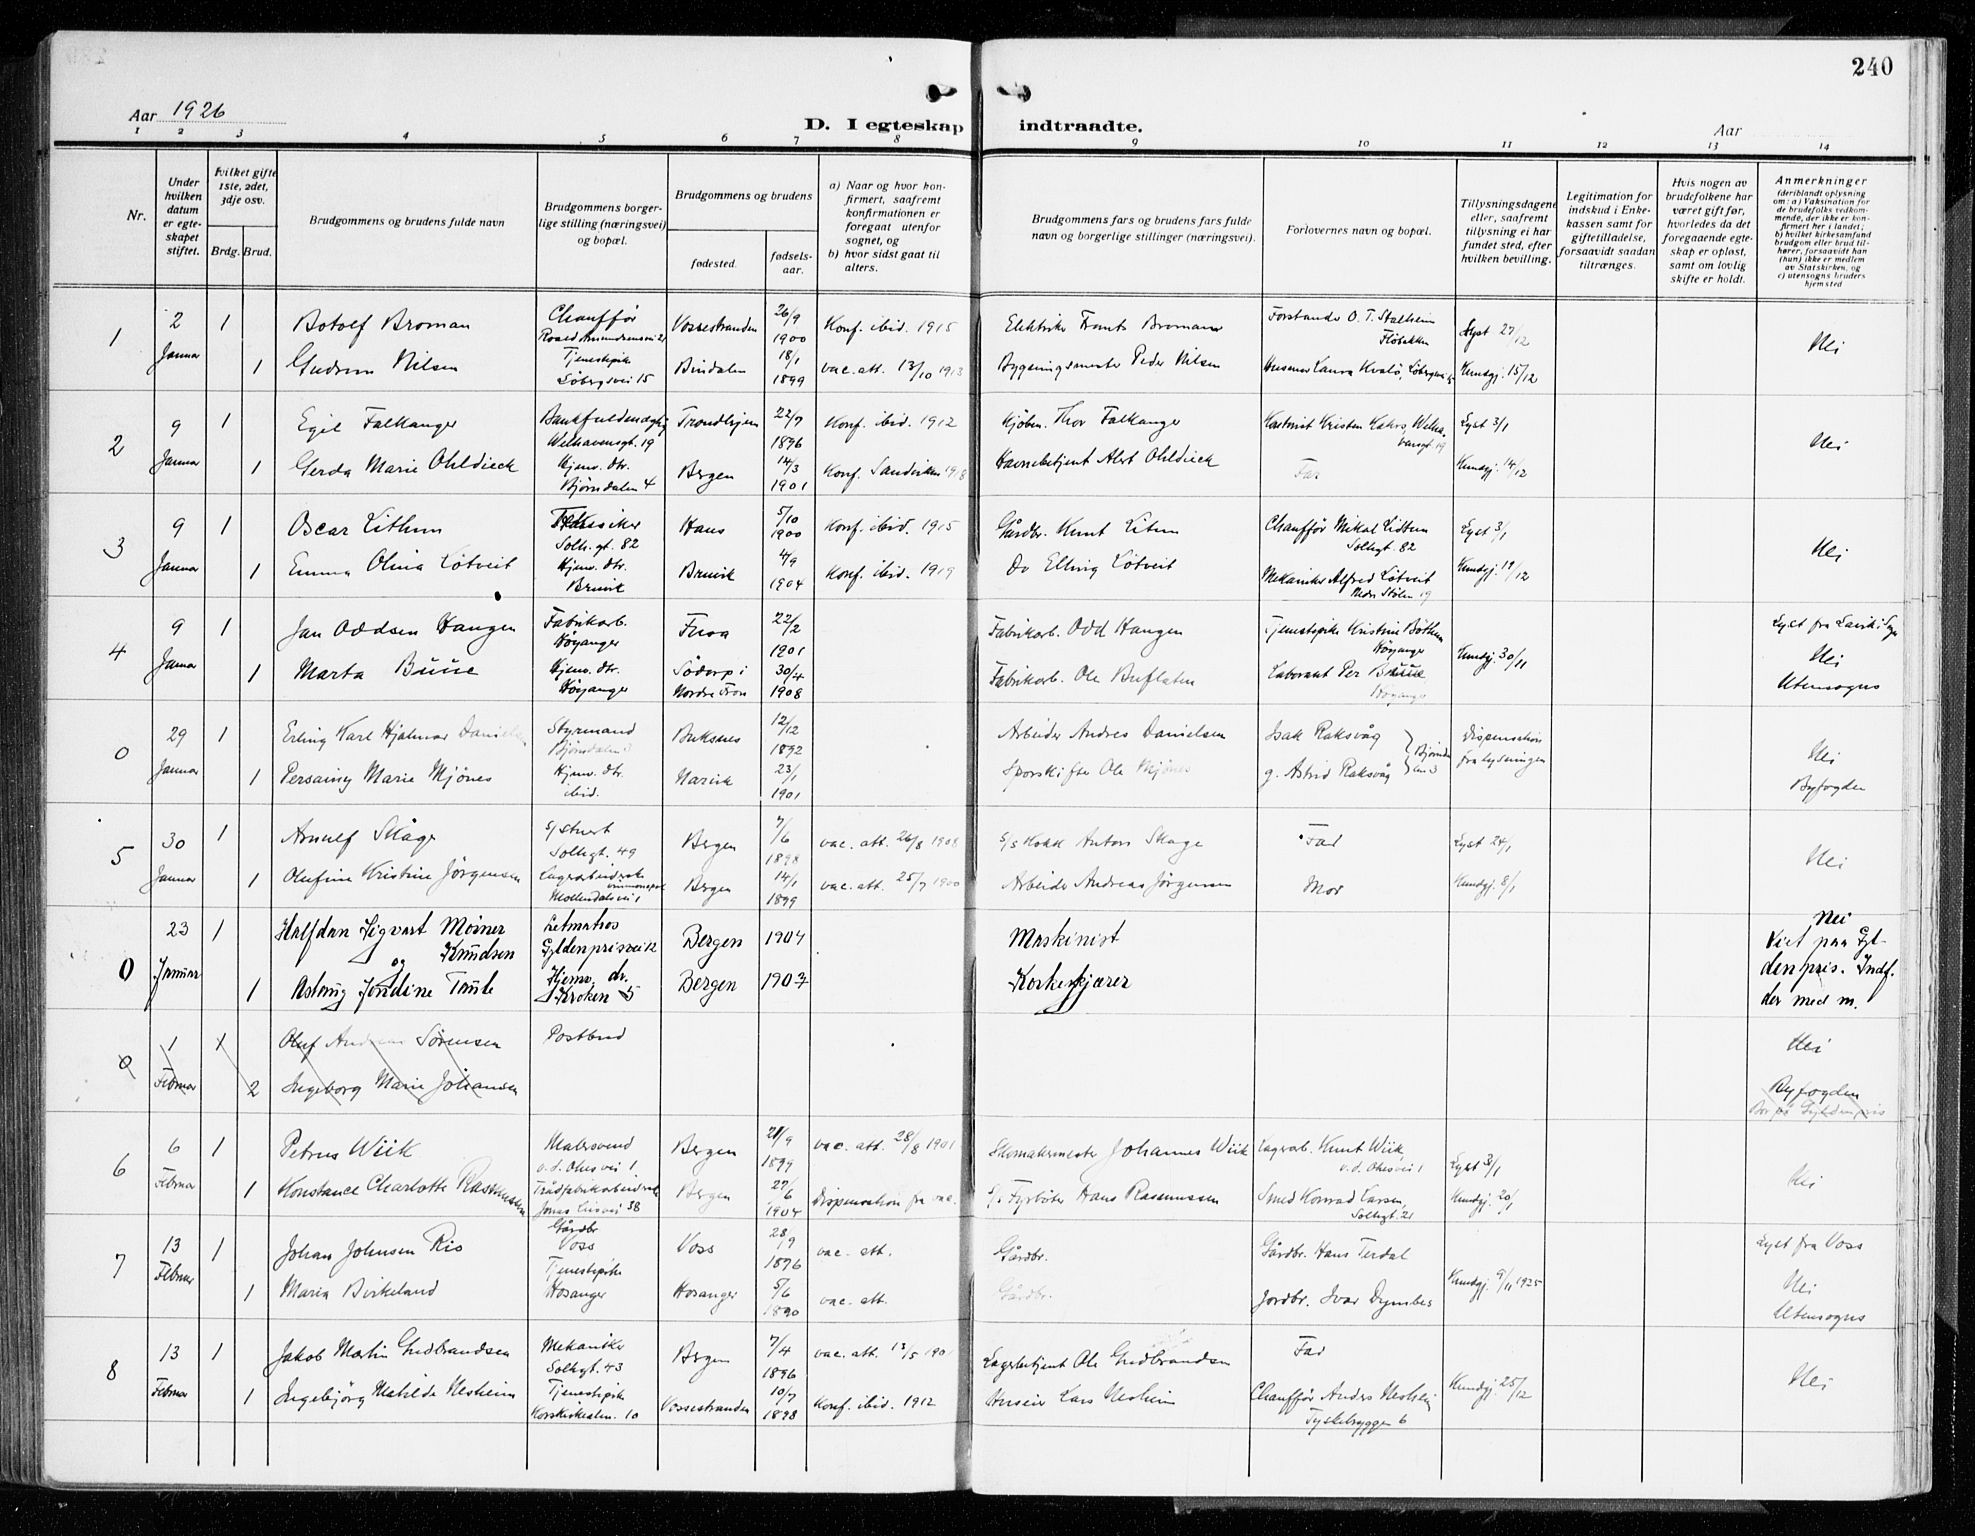 240
Aar 1926
D. I egteskap indtraadte.
Aar
1 2 3 4 5 6 7 8 9 10 11 12 13 14
Nr.
Under hvilken datum er egteskapet stiftet.
Hvilket gifte 1ste, 2det, 3dje osv.
Brdg. Brud.
Brudgommens og brudens fulde navn
Brudgommens borgerlige stilling (næringsvei) og bopæl.
Brudgommens og brudens
fødested.
fødselsaar.
a) Naar og hvor konfirmert, saafremt konfirmationen er foregaat utenfor sognet, og
b) hvor sidst gaat til alters.
Brudgommens fars og brudens fars fulde navn og borgerlige stillinger (næringsvei).
Forlovernes navn og bopæl.
Tillysningsdagene eller, saafremt tillysning ei har fundet sted, efter hvilken bevilling.
Legitimation for indskud i Enkekassen samt for giftetilladelse, forsaavidt saadan tiltrænges.
Hvis nogen av brudefolkene har været gift før, hvorledes da det foregaaende egteskap er opløst, samt om lovlig skifte er holdt.
Anmerkninger
(deriblandt oplysning om: a) Vaksination for de brudefolks vedkommende, der ikke er konfirmert her i landet; b) hvilket kirkesamfund brudgom eller brud tilhører, forsaavidt han (hun) ikke er medlem av Statskirken, og c) utensogns bruders hjemsted
1 2 Januar 1 Botolf Broman Chauffør Roald Amundsensvei 21 Vossestranden 26/9 1900 Konf. ibid. 1915 Elektriker Frants Bromann Forstander O. T. Stalheim Fløbakken Lyst 27/12 Nei
1 Gudrun Nilsen Tjenestepike Løbergsvei 15 Bindalen 18/1 1899 vac. att. 13/10 1913 Bygningsmester Peder Nilsen Husmor Laura Kvalø, Løbergsvei 15 Kundgj. 15/12
2 9 Januar 1 Egil Falkanger Bankfuldmægtig Welhavensgt. 19 Trondhjem 22/7 1896 Konf. ibid. 1912 Kjøbm. Thor Falkanger Kristen Welhavensgt 19 Lyst 3/1 Nei
1 Gerda Marie Ohldieck Hjemv. dtr. Bjørndalen 4 Bergen 14/3 1901 Konf. Sandviken 1918 Havnebetjent Alert Ohldieck Far Kundgj. 14/12
3 9 Januar 1 Oscar Lithun Solh. gt. 82 Haus 5/10 1900 Konf. ibid. 1915 Gårdbr. Knut Litun Chauffør Mikal Lidtun Solhgt. 82 Lyst 3/1 Nei
1 Emma Olina Løtveit Hjemv. dtr. Bruvik Bruvik 4/9 1904 Konf. ibid. 1919 Do Elling Løtveit Mekaniker Alfred Løtveit Nedre Stølen 19 Kundgj. 19/12
4 9 Januar 1 Jan Oddsen Haugen Fabrikarb. Høyanger Fusa 22/2 1901 Fabrikarb. Odd Haugen Tjenestepike Kristine Bøthun Høyanger Kundgj. 30/11 Lyst fra Lavik i Sogn
1 Marta Buue Hjemv. dtr. Høyanger Södorp i Nordre Fron 30/4 1908 Fabrikarb. Ole Buflaten Laborant Per Buue Høyanger Nei Utensogns
0 29 Januar 1 Erling Karl Hjalmar Danielsen Styrmand Bjørndalen 3 Buksnes 12/12 1892 Arbeider Andres Danielsen Isak Raksvåg Bjørndalen 3 Dispensation fra lysningen Nei
1 Persainy Marie Mjönes Hjemv. dtr. ibid. Narvik 23/1 1901 Sporskifter Ole Mjönes g. Astrid Raksvåg Byfogden
5 30 Januar 1 Arnulf Skåge s/stuert Solhgt. 49 Bergen 7/6 1898 vac. att. 26/8 1908 s/s Kokk Anton Skage Far Lyst 24/1 Nei
1 Olufine Kristine Jørgensen Møllendalsvei 1 Bergen 14/1 1899 vac. att. 25/7 1900 Arbeider Andreas Jørgensen Mor Kundgj. 8/1
0 23 Januar 1 Halfdan Sigvart Meiner Knudsen Letmatros Gyldenprisvei 12 Bergen 1904 Maskinist Nei
og
1 Astrug Jondine Taule Hjemv. dr. Kroken 5 Bergen 1903 Korkeskjærer Viet paa Gyldenpris. Indf. der med m.
0 1 Februar 1 Oluf Andreas Sørensen Postbud Nei
2 Ingeborg Marie Johansen Byfogden Bor på Gyldenpris
6 6 Februar 1 Petrus Wiik Malersvend v. d. Ohesvei 1 Bergen 21/9 1899 vac. att. 28/8 1901 Skomakermester Johannes Wiik Lagerarb. Knut Wiik, v. d. Ohesvei 1 Lyst 3/1 Nei
1 Konstance Charlotte Rasmussen Trådfabrikarbeiderske Jonas Liesvei 38 Bergen 27/6 1904 Dispensation fra vac. s/s Fyrbøter Hans Rasmussen Smed Konrad Larsen, Solhgt. 21 Kundgj. 20/1
7 13 Februar 1 Johan Johnsen Rio Gårdbr Voss Voss 28/9 1896 vac. att. Gårdbr. Gårdbr. Hans Terdal Kundgj. 9/11 1925 Lyst fra Voss
1 Maria Birkeland Tjenestepike Hosanger Hosanger 5/6 1890 vac. att. Gårdbr. Jordbr. Ivar Dymbes Nei Utensogns
8 13 Februar 1 Jakob Martin Gudbrandsen Mekaniker Solhgt. 43 Bergen 7/4 1896 vac. att. 13/5 1901 Lagerbetjent Ole Gudbrandsen Far Kundgj. 25/12 Nei
1 Ingebjörg Matilde Nesheim Tjenestepike Korskirkealm. 10 Vossestranden 10/7 1898 Konf. ibid. 1912 Lars Nesheim Chauffør Anders Nesheim Tyskebryggen 6